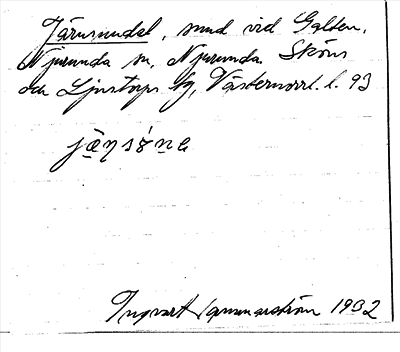 Järnsundet, sund vid Galten,
Njurunda sn, Njurunda Sköns
och Ljustorps tg, Västernorrl. l. 93
Ingvart Hammarström 1932